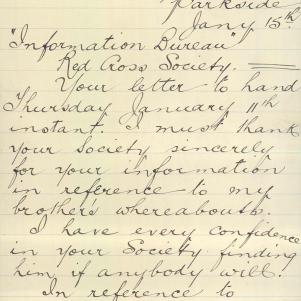 Parkside
Jany 15th
"Information Bureau"
Red Cross Society.
Your letter to hand
Thursday January 11th
instant. I must thank
your Society sincerely
for your information
in reference to my
brother's whereabouts.
I have every confidence
in your Society finding
him if anybody will.
In reference to